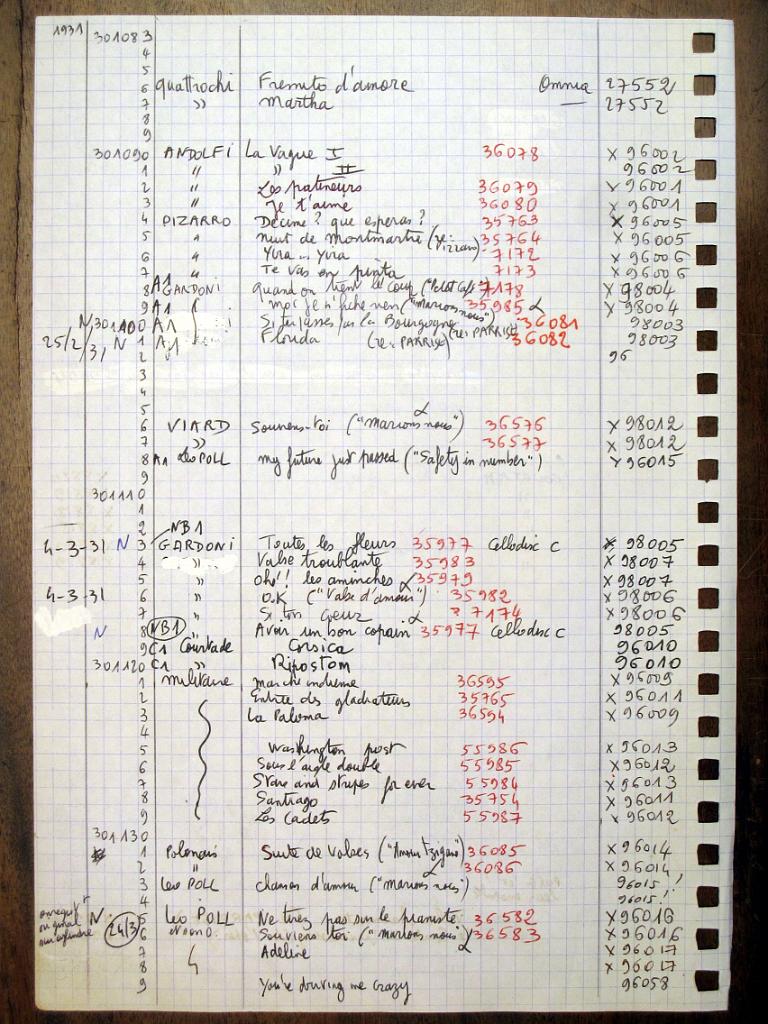 1931 301083
4
5
6 quattrochi Fremito d'amore Omnia 27552
7 " Martha — 27552
8
9
301090 ANDOLFi La Vague I 36078 X 96002
1 " " II 96002
2 " Les patineurs 36079 X 96001
3 " Je t'aime 36080 X 96001
4 PIZARRO Decime? que esperas? 35763 X 96005
5 " nuit de montmartre (re: Pizzaro) 35764 X 96005
6 " Yira... Yira 7172 X 96006
7 " Te vas en pinta 7173 X 96006
8 A1 GARDONI quand on tient le coup ("Petit Café") 7178 X 98004
9 A1 moi je m'fiche rien ("marions nous") 35985 α X 98004
N 301100 A1 Si tu passes par la Bourgogne (re: PARRISE) 36081 98003
25/2/31 N 1 A1 Florida (re: PARRISE) 36082 98003
2 96
3
4
5
6 VIARD Souviens-toi ("marions nous") α 36576 X 98012
7 " 36577 X 98012
8 A1 Leo POLL my future just passed ("Safety in number") X 96015
9
301110
1
2
4-3-31 N 3 NB1 GARDONi Toutes les fleurs 35977 Cellodisc C X 98005
4 Valse troublante 35983 X 98007
5 " Ohé!! les aminches α 35979 X 98007
4-3-31 6 " O.K ("Valse d'amour") 35982 X 98006
7 " Si ton coeur α ? 7174 X 98006
N 8 NB1 " Avoir un bon copain 35977 Cellodisc C 98005
9 C1 Courtade Corsica 96010
301120 C1 " Ripostom 96010
1 militaire marche indienne 36595 X 96009
2 Entrée des gladiateurs 35765 X 96011
3 La Paloma 36594 X 96009
4
5 Washington post 55986 X 96013
6 Sous l'aigle double 55985 X 96012
7 Stars and stripes for ever 55984 X 96013
8 Santiago 35754 X 96011
9 Les Cadets 55987 X 96012
301130
1 Polonais Suite de Valses ("Amour Tzigane") 36085 X 96014
2 " α 36086 X 96014
3 Leo POLL chanson d'amour ("marions nous") 96015!
4 96015!
N 5 Leo POLL Ne tirez pas sur le pianiste 36582 X 96016
24/3 6 Souviens toi ("marions nous") α 36583 X 96016
7 Adeline X 96017
8 X 96017
9 You're driving me crazy 96058